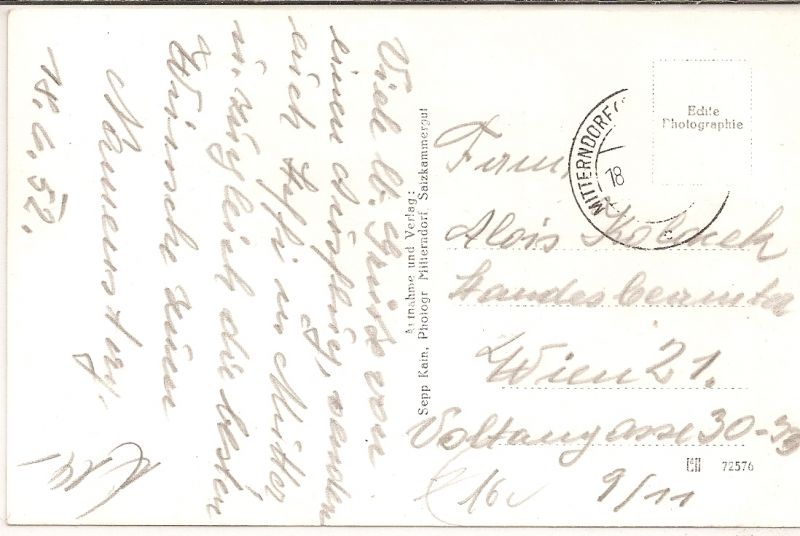 18. 6. 52.
Viele lb. Grüße von
einem Ausflug senden
euch Steffi u. Mitzi,
u. zugleich die besten
Wünsche zum
Namenstag.
Aufnahme und Verlag:
Sepp Kain, Photogr Mitterndorf, Salzkammergut
Echte
Photographie
MITTERNDORF
18
Firma
Alois
Standesbeamter
Wien 21.
Voltagasse 30-
9/11
72576